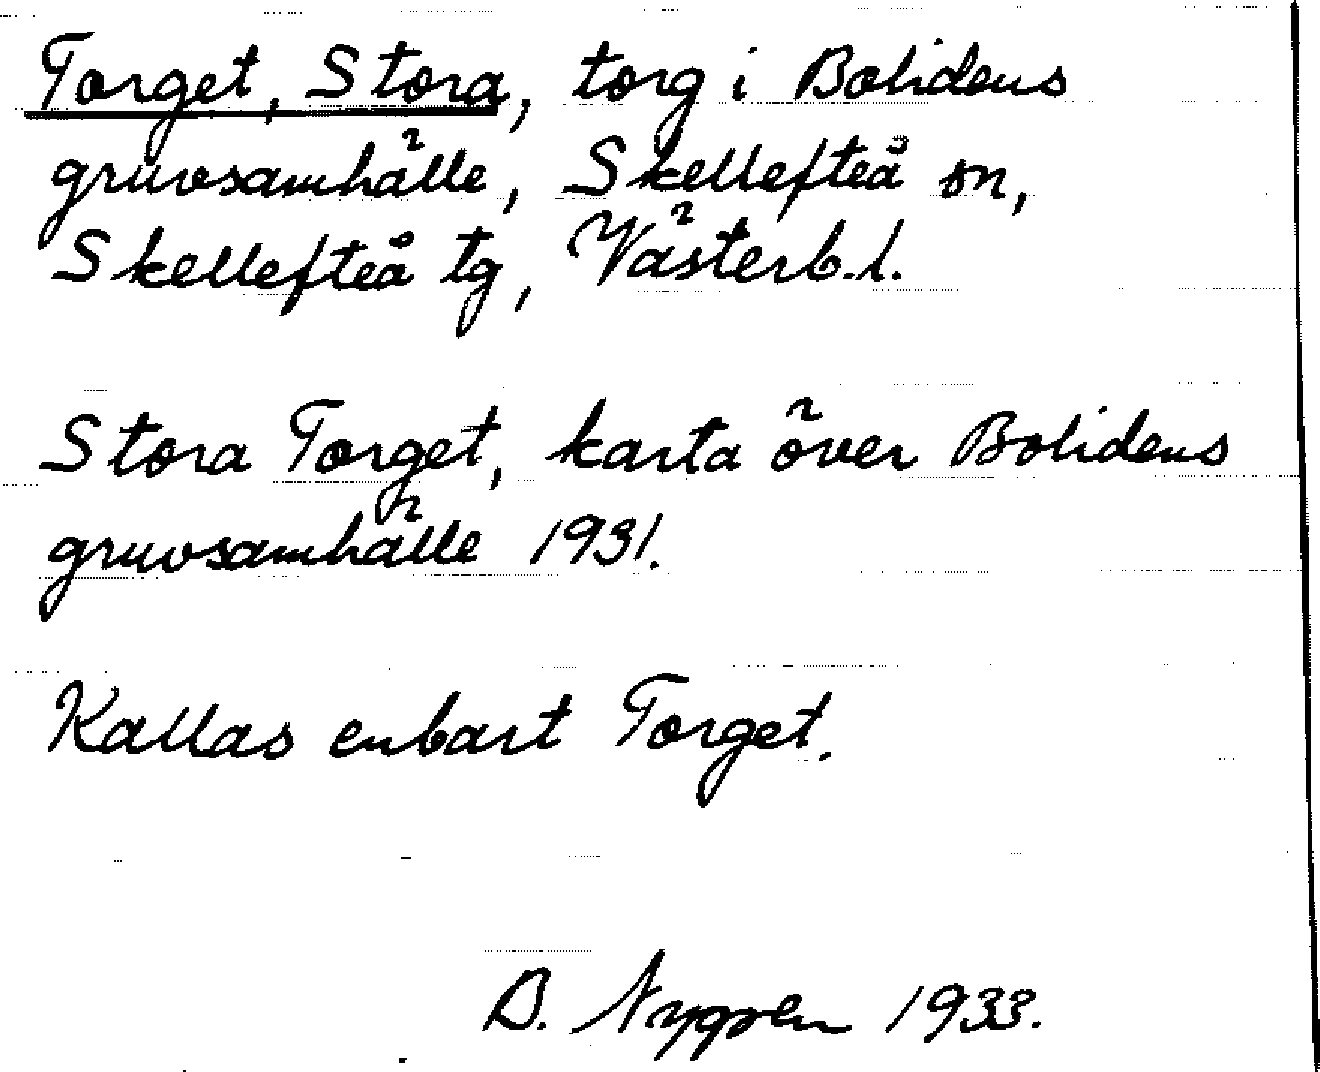 Torget, Stora, torg i Bolidens
gruvsamhälle, Skellefteå sn,
Skellefteå tg, Västerb.l.
Stora Torget, karta över Bolidens
gruvsamhälle 1931.
Kallas enbart Torget.
D. Nygren 1933.